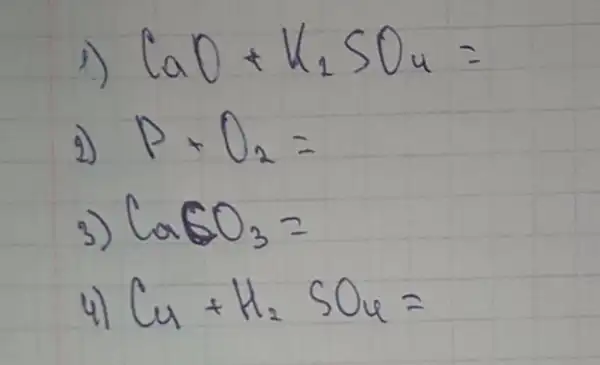 1) CaO + K₂SO₄ =
2) P + O₂ =
3) CaCO₃ =
4) Cu + H₂SO₄ =